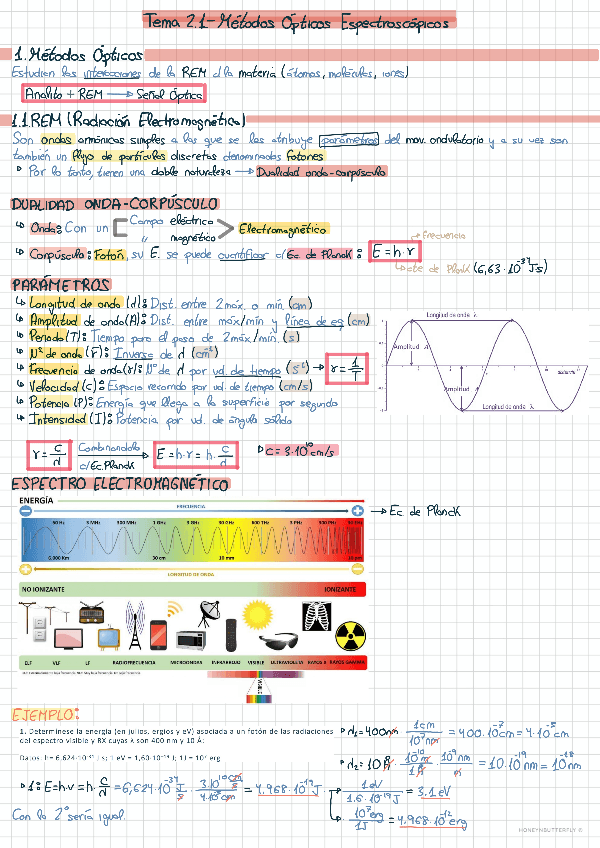 Tema 2.1-Métodos Ópticos Espectroscópicos
1. Métodos Ópticos
Estudian las interacciones de la REM c/ la materia (átomos, moléculas, iones)
Analito + REM → Señal Óptica
1.1 REM (Radiación Electromagnética)
Son ondas armónicas simples a las que se les atribuye parámetros del mov. ondulatorio y a su vez son
también un flujo de partículas discretas denominadas fotones
Por lo tanto, tienen una doble naturaleza → Dualidad onda-corpúsculo
DUALIDAD ONDA-CORPÚSCULO
Onda: Con un Campo eléctrico
" magnético
Electromagnético
Corpúsculo: Fotón, su E. se puede cuantificar c/ Ec. de Planck: E=h·r
Frecuencia
cte de Planck (6,63·10⁻³⁴ Js)
PARÁMETROS
Longitud de onda (λ): Dist. entre 2 máx. o mín (cm)
Amplitud de onda (A): Dist. entre máx/mín y línea de eq (cm)
Periodo (T): Tiempo para el paso de 2 máx/mín. (s)
Nº de onda (r̄): Inversa de λ (cm⁻¹)
Frecuencia de onda (r): Nº de λ por ud. de tiempo (s⁻¹) → r = 1/T
Velocidad (c): Espacio recorrido por ud. de tiempo (cm/s)
Potencia (P): Energía que llega a la superficie por segundo
Intensidad (I): Potencia por ud. de ángulo sólido
Longitud de onda λ
Amplitud A
distancia
Amplitud A
Longitud de onda λ
r = c/λ Combinandolo c/Ec.Planck E = h·r = h· c/λ
c = 3·10¹⁰ cm/s
ESPECTRO ELECTROMAGNÉTICO
ENERGÍA
→ Ec. de Planck
FRECUENCIA
50 Hz 3 MHz 300 MHz 3 GHz 30 GHz 600 THz 3 PHz 300 PHz
6.000 Km 30 cm 10 mm
LONGITUD DE ONDA
NO IONIZANTE IONIZANTE
ELF VLF LF RADIOFRECUENCIA MICROONDAS INFRARROJO VISIBLE ULTRAVIOLETA RAYOS X RAYOS GAMMA
VISIBLE
EJEMPLO:
1. Determínese la energía (en julios, ergios y eV) asociada a un fotón de las radiaciones
del espectro visible y RX cuyas λ son 400 nm y 10 Å:
Datos. h = 6,624·10⁻³⁴ J s; 1 eV = 1,60·10⁻¹⁹ J; 1J = 10⁷ erg
λ₁ = 400 nm · 1cm/10⁷nm = 400·10⁻⁷ cm = 4·10⁻⁵ cm
λ₂ = 10 Å
1: E = h·r = h· c/λ = 6,624·10⁻³⁴ J/s · 3·10¹⁰ cm/s / 4·10⁻⁵ cm = 4.968·10⁻¹⁹ J
· 1eV / 1.6·10⁻¹⁹ J = 3.1 eV
· 10⁷erg / 1J = 4.968·10⁻¹² erg
Con la 2º sería igual.
HONEYNBUTTERFLY